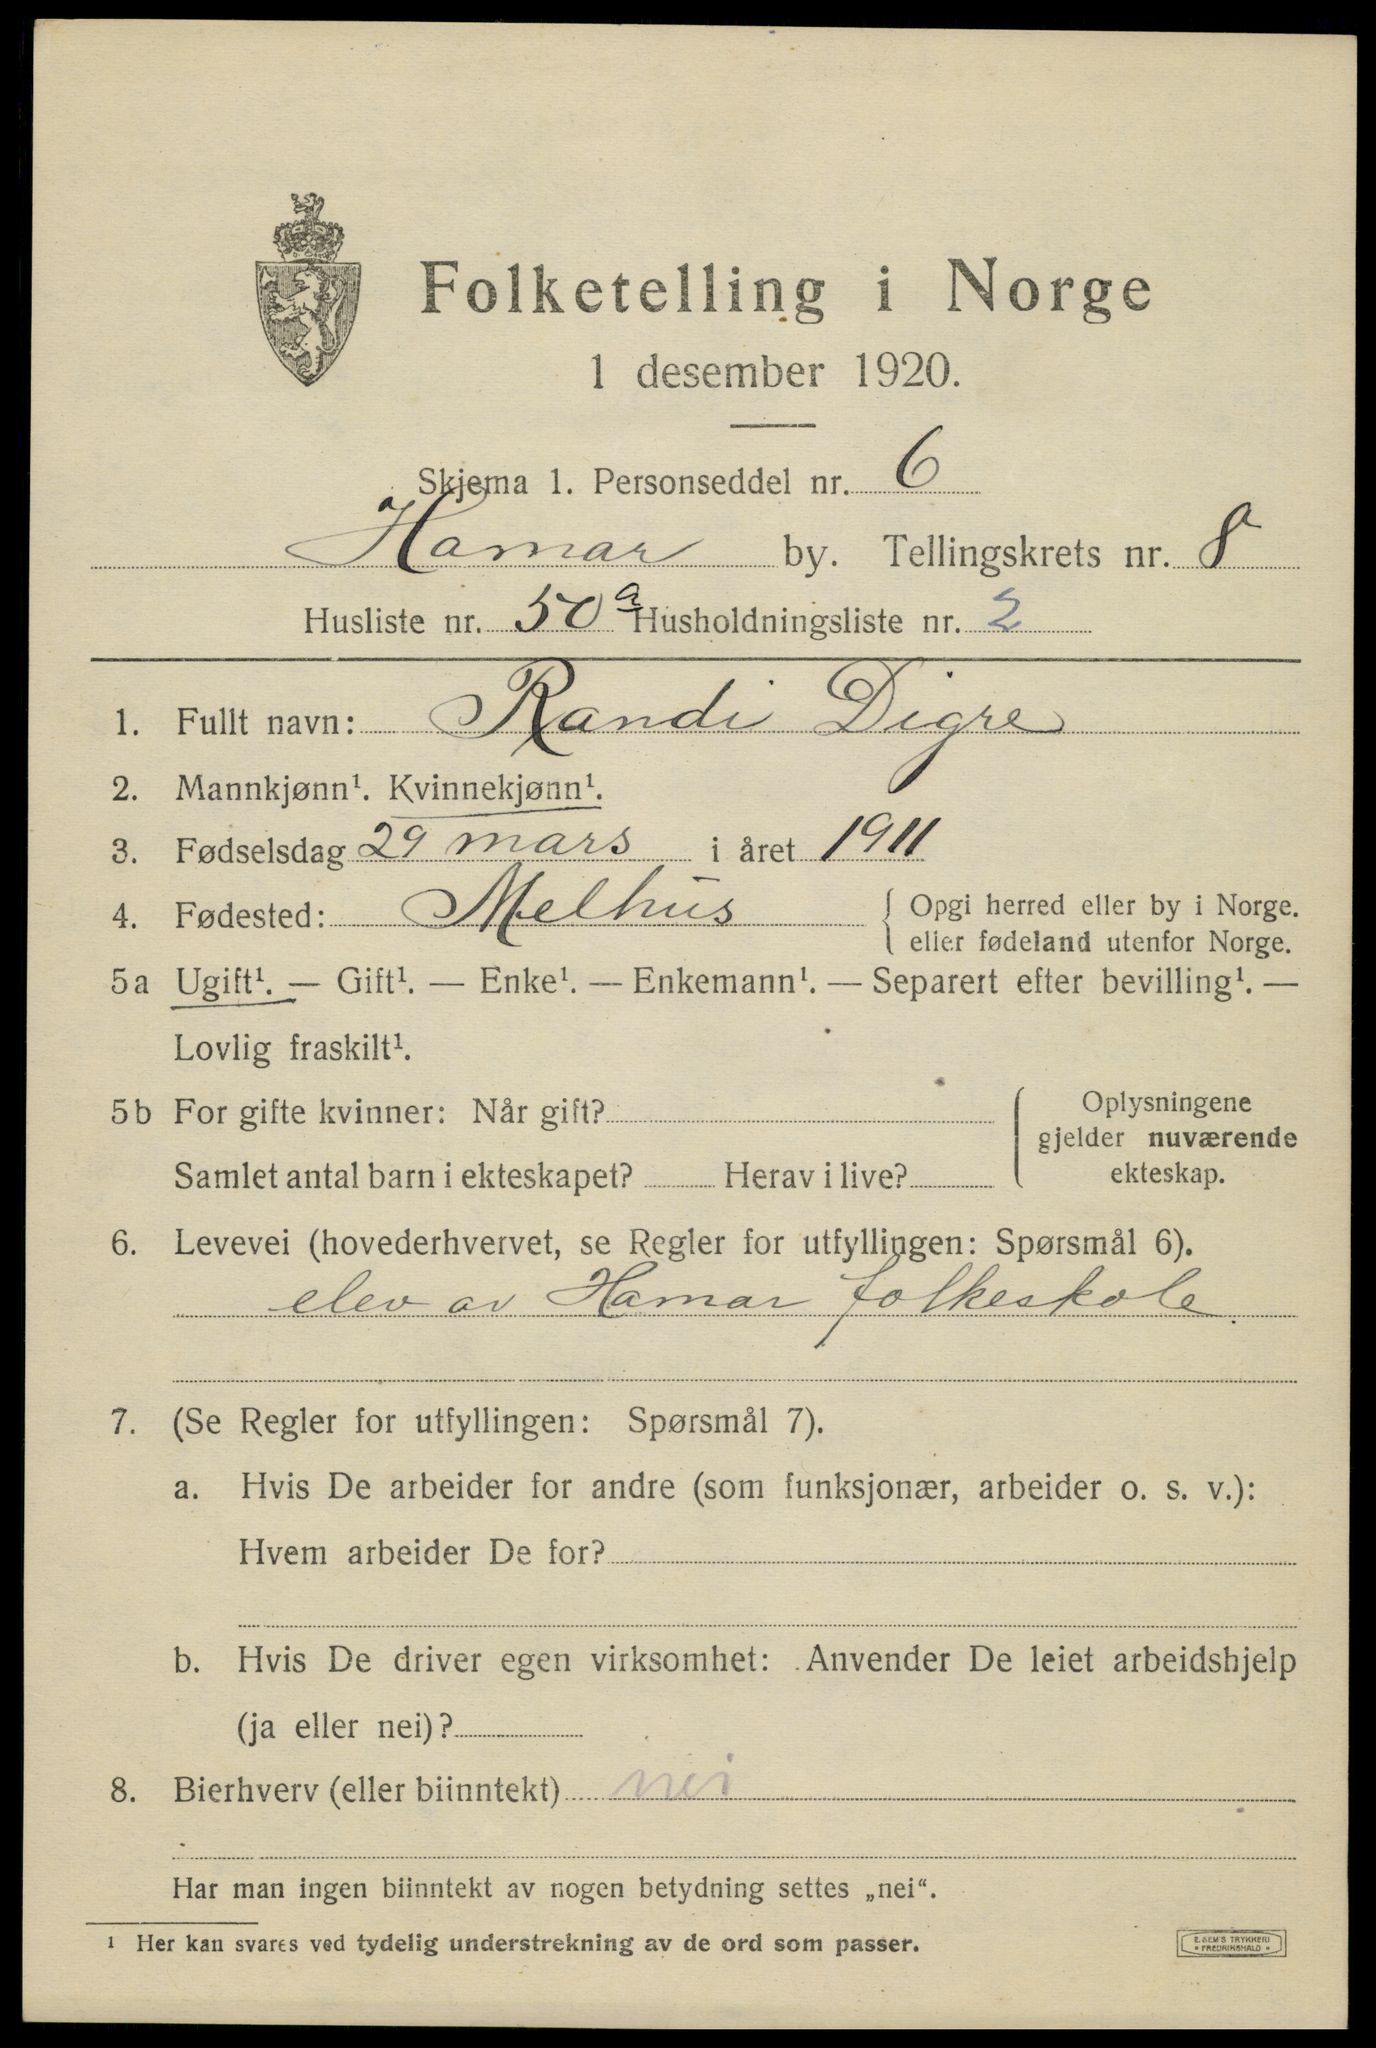 Folketelling i Norge
1 desember 1920.
Skjema 1. Personseddel nr. 6
Hamar by. Tellingskrets nr. 8
Husliste nr. 50 a Husholdningsliste nr. 2
1. Fullt navn: Randi Digre
2. Mannkjønn¹. Kvinnekjønn¹.
3. Fødselsdag 29 mars i året 1911
4. Fødested: Melhus { Opgi herred eller by i Norge.
eller fødeland utenfor Norge.
5a Ugift¹. — Gift¹. — Enke¹. — Enkemann¹. — Separert efter bevilling¹. —
Lovlig fraskilt¹.
5b For gifte kvinner: Når gift? Oplysningene
gjelder nuværende
Samlet antal barn i ekteskapet? Herav i live? ekteskap.
6. Levevei (hovederhvervet, se Regler for utfyllingen: Spørsmål 6).
elev av Hamar folkeskole.
7. (Se Regler for utfyllingen: Spørsmål 7).
a. Hvis De arbeider for andre (som funksjonær, arbeider o. s. v.):
Hvem arbeider De for?
b. Hvis De driver egen virksomhet: Anvender De leiet arbeidshjelp
(ja eller nei)?
8. Bierhverv (eller biinntekt) nei
Har man ingen biinntekt av nogen betydning settes „nei“.
¹ Her kan svares ved tydelig understrekning av de ord som passer.
E. SEM'S TRYKKERI
FREDRIKSHALD